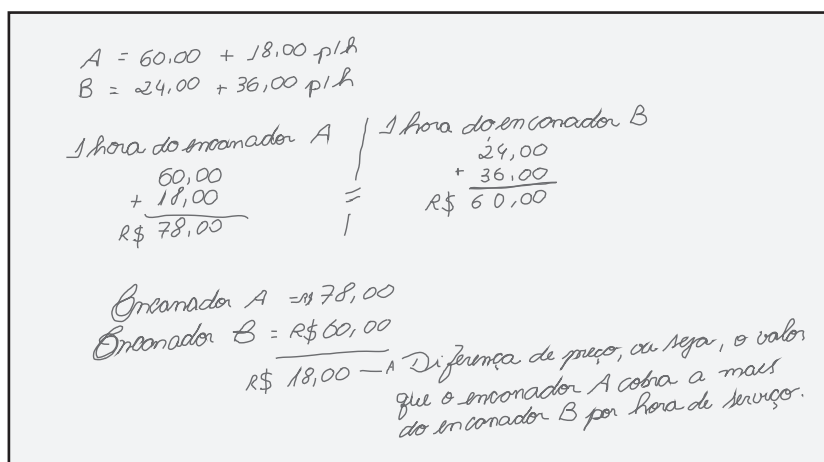 A = 60,00 + 18,00 p/h
B = 24,00 + 36,00 p/h
1 hora do encanador A
60,00
+ 18,00
R$ 78,00
/ = /
1 hora do enconador B
24,00
+ 36,00
R$ 60,00
Encanador A = R$ 78,00
Enconador B = R$ 60,00
R$ 18,00 — A Diferença de preço, ou seja, o valor
que o enconador A cobra a mais
do enconador B por hora de serviço.